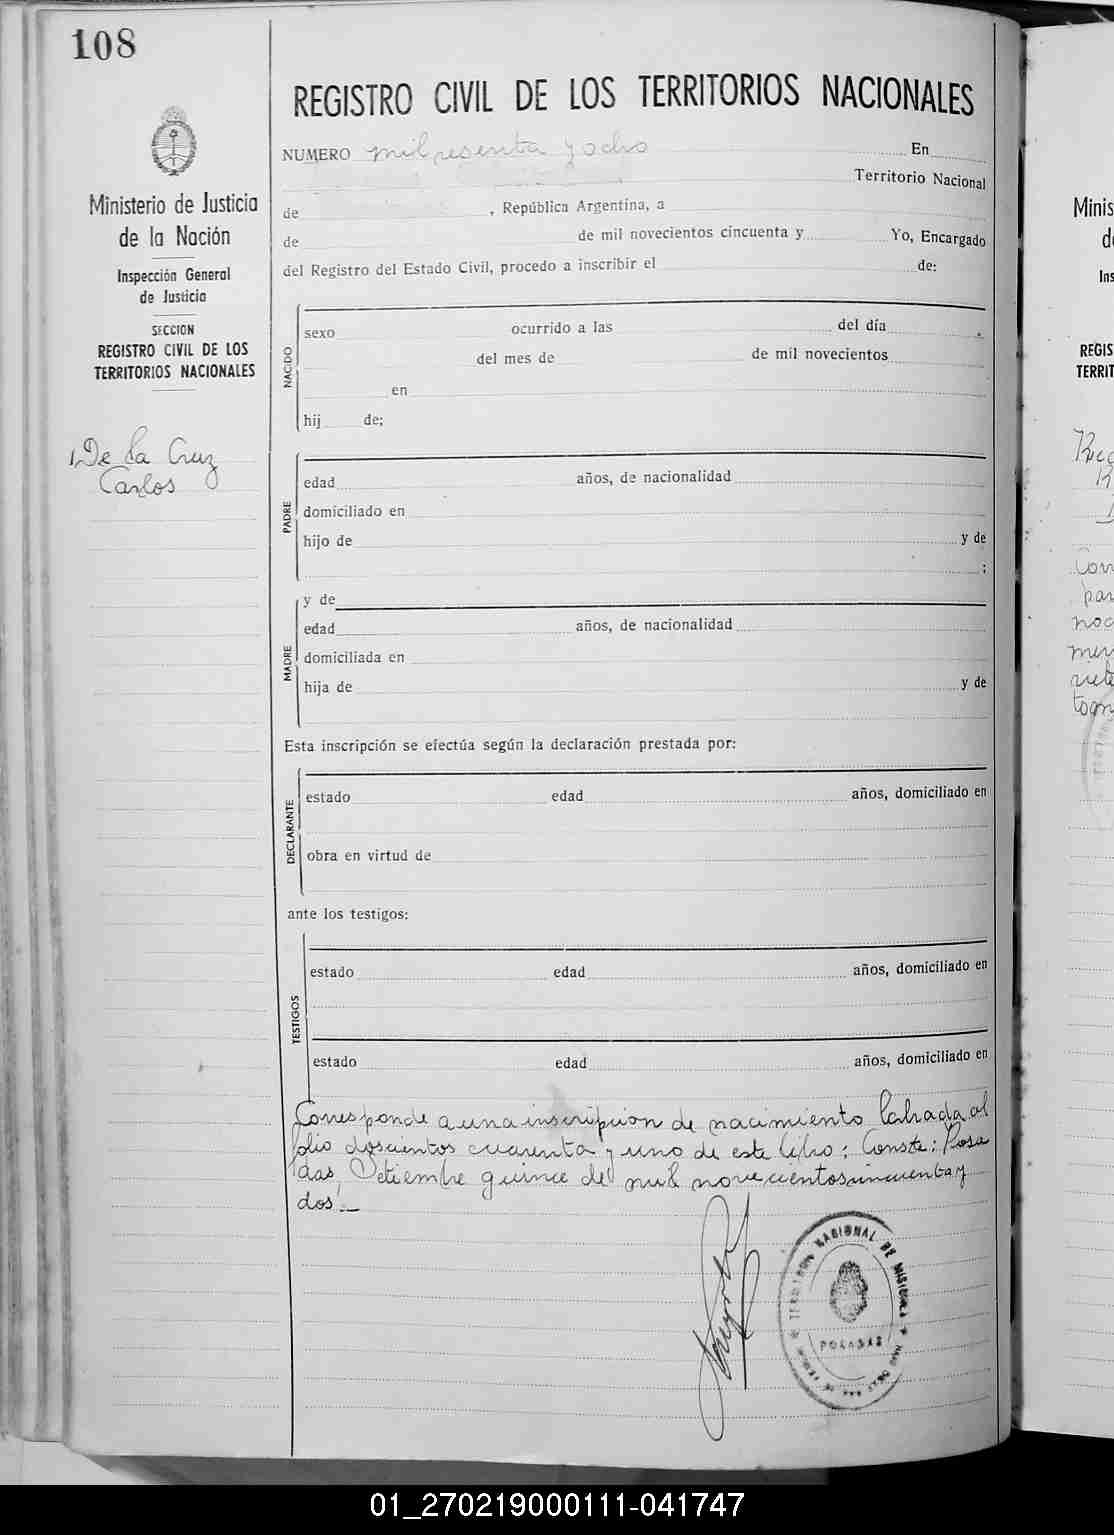 108
REGISTRO CIVIL DE LOS TERRITORIOS NACIONALES
NUMERO mil sesenta y ocho En
Territorio Nacional
de , República Argentina, a
de de mil novecientos cincuenta y Yo, Encargado
del Registro del Estado Civil, procedo a inscribir el de:
Ministerio de Justicia
de la Nación
Inspección General
de Justicia
SECCION
REGISTRO CIVIL DE LOS
TERRITORIOS NACIONALES
De la Cruz
Carlos
NACIDO
sexo ocurrido a las del día
del mes de de mil novecientos
en
hij de;
PADRE
edad años, de nacionalidad
domiciliado en
hijo de y de
;
MADRE
y de
edad años, de nacionalidad
domiciliada en
hija de y de
Esta inscripción se efectúa según la declaración prestada por:
DECLARANTE
estado edad años, domiciliado en
obra en virtud de
ante los testigos:
TESTIGOS
estado edad años, domiciliado en
estado edad años, domiciliado en
Corresponde a una inscripcion de nacimiento labrada al
folio doscientos cuarenta y uno de este libro: Conste: Posa
das, Setiembre quince de mil novecientos cincuenta y
dos.-
TERRITORIO NACIONAL DE MISIONES
POSADAS
Minis
de
Ins
REGIS
TERRIT
01_270219000111-041747